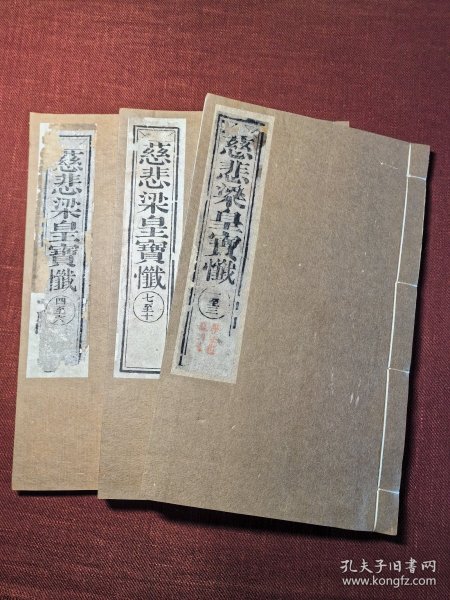 慈悲梁皇寶懺
一至三
慈悲梁皇寶懺
七至十
慈悲梁皇寶懺
四至六
孔夫子旧书网
www.kongfz.com